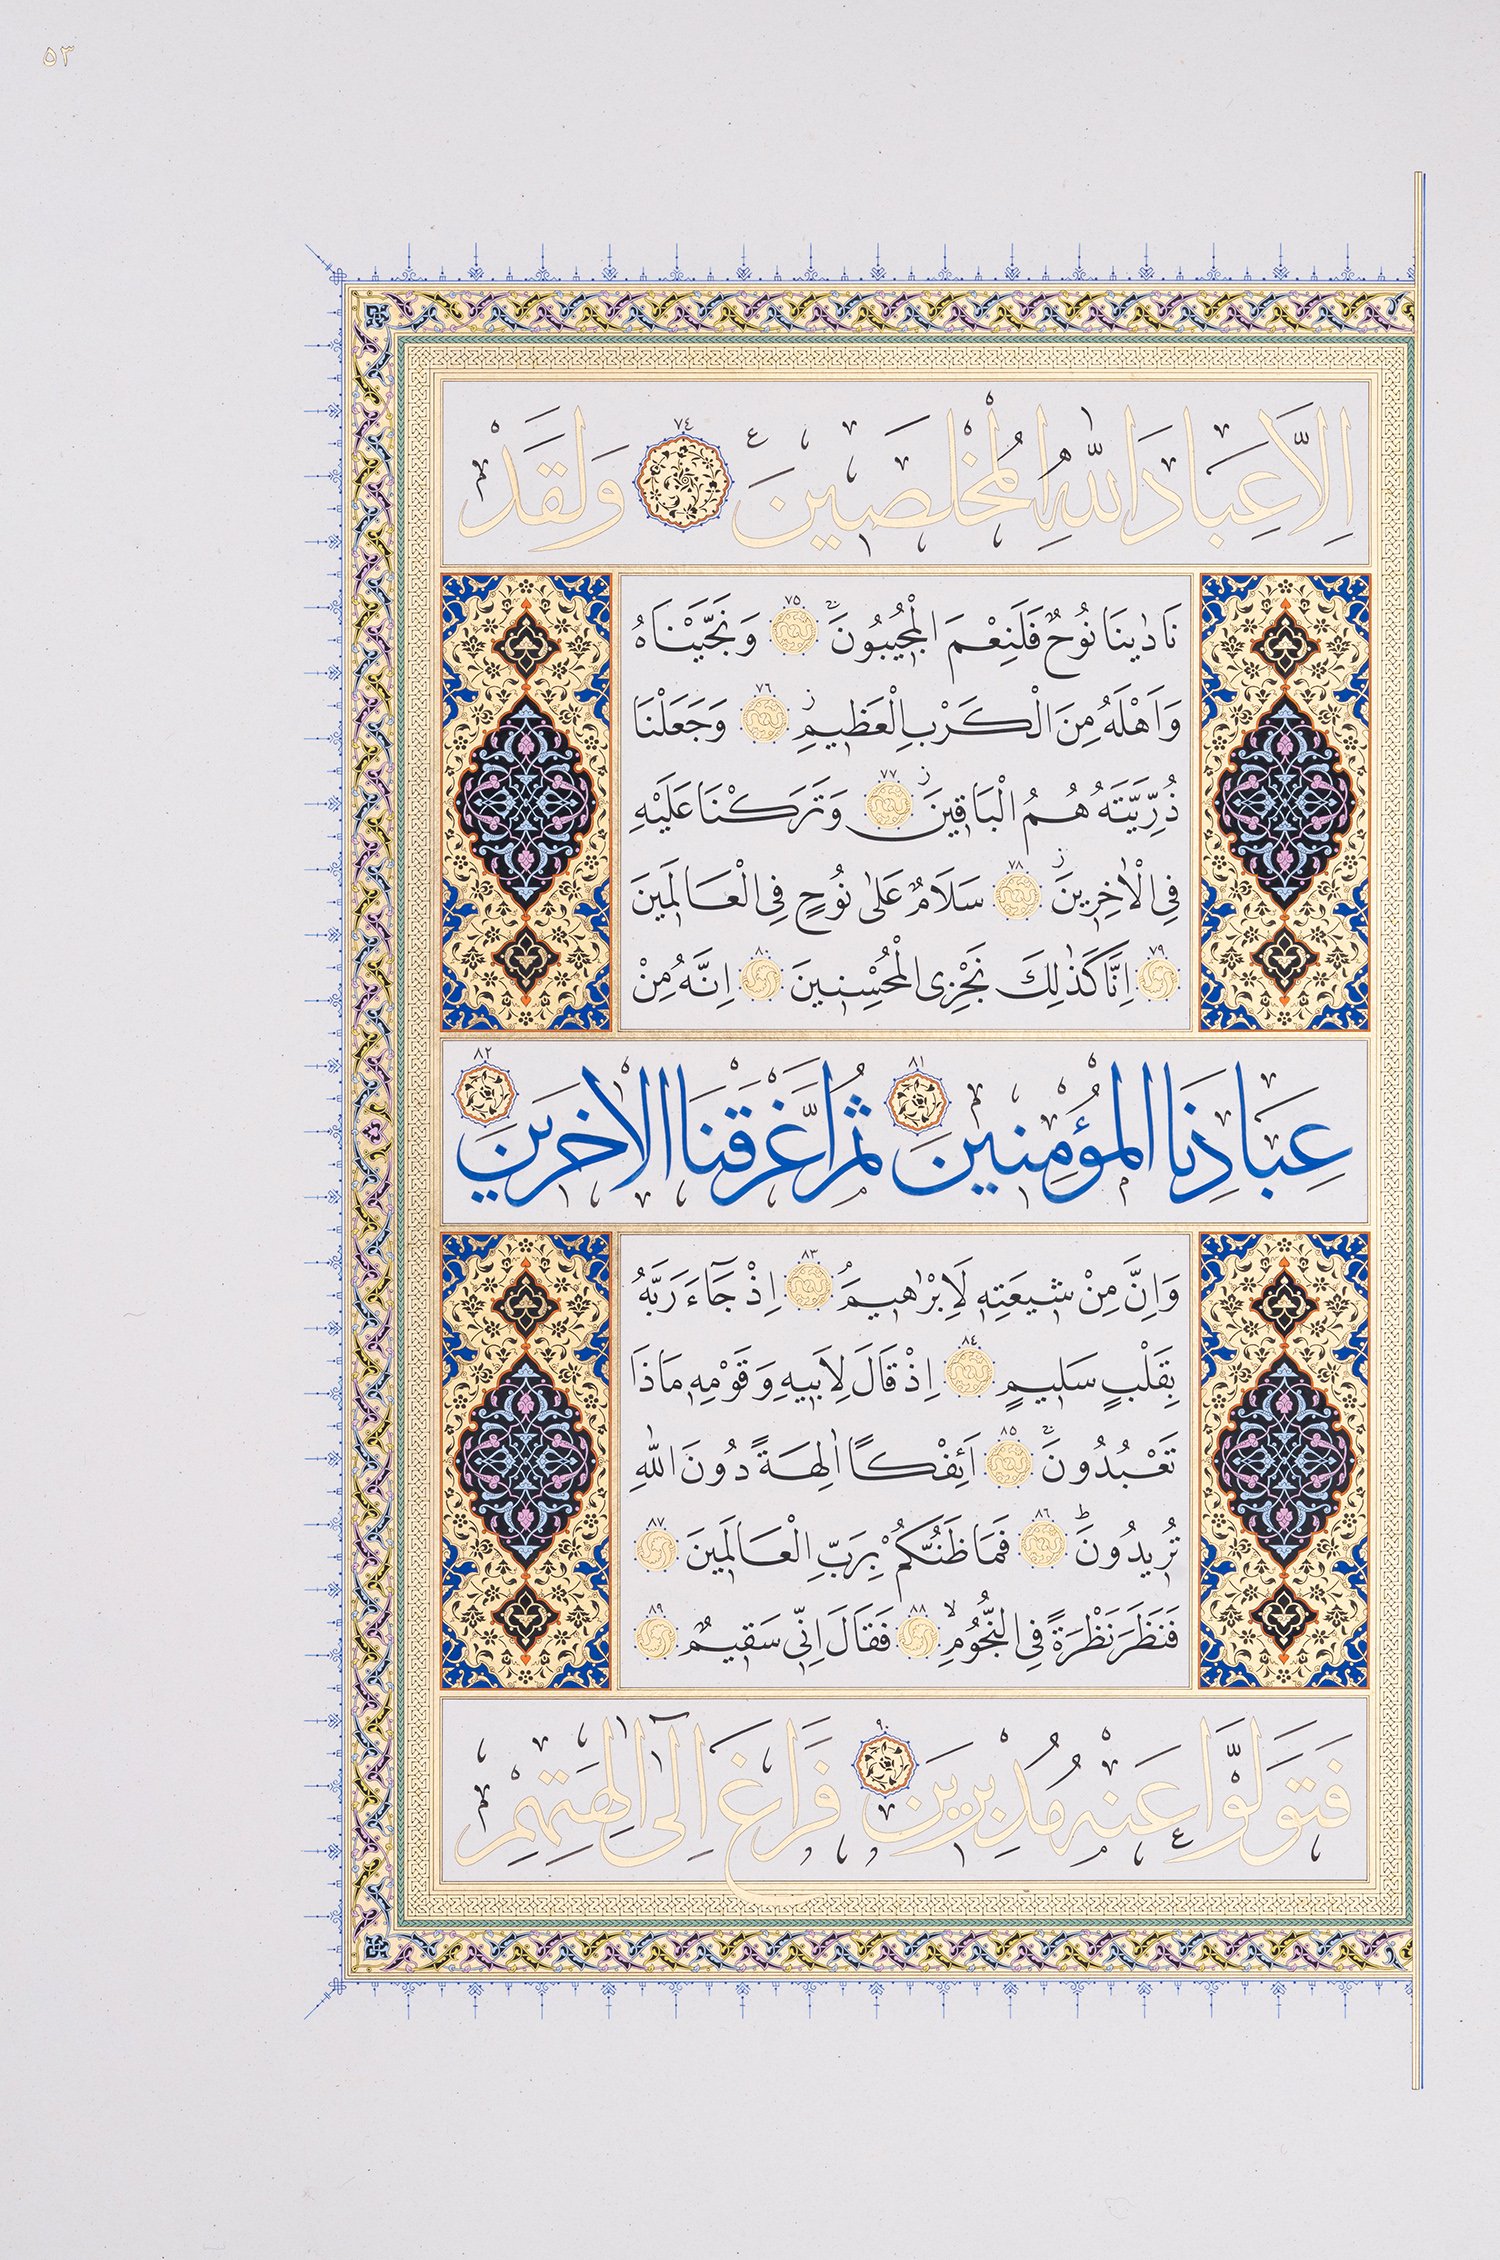 ٥٣
اِلَّا عِبَادَ اللّٰهِ الْمُخْلَصِينَ ٧٤ وَلَقَدْ
نَادٰينَا نُوحٌ فَلَنِعْمَ الْمُجِيبُونَ ٧٥ وَنَجَّيْنَاهُ
وَاَهْلَهُ مِنَ الْكَرْبِ الْعَظِيمِ ٧٦ وَجَعَلْنَا
ذُرِّيَّتَهُ هُمُ الْبَاقِينَ ٧٧ وَتَرَكْنَا عَلَيْهِ
فِي الْاٰخِرِينَ ٧٨ سَلَامٌ عَلٰى نُوحٍ فِي الْعَالَمِينَ
٧٩ اِنَّا كَذٰلِكَ نَجْزِي الْمُحْسِنِينَ ٨٠ اِنَّهُ مِنْ
عِبَادِنَا الْمُؤْمِنِينَ ٨١ ثُمَّ اَغْرَقْنَا الْاٰخَرِينَ ٨٢
وَاِنَّ مِنْ شِيعَتِهِ لَاِبْرٰهِيمَ ٨٣ اِذْ جَٓاءَ رَبَّهُ
بِقَلْبٍ سَلِيمٍ ٨٤ اِذْ قَالَ لِاَبِيهِ وَقَوْمِهِ مَاذَا
تَعْبُدُونَ ٨٥ اَئِفْكًا اٰلِهَةً دُونَ اللّٰهِ
تُرِيدُونَ ٨٦ فَمَا ظَنُّكُمْ بِرَبِّ الْعَالَمِينَ ٨٧
فَنَظَرَ نَظْرَةً فِي النُّجُومِ ٨٨ فَقَالَ اِنِّي سَقِيمٌ ٨٩
فَتَوَلَّوْا عَنْهُ مُدْبِرِينَ ٩٠ فَرَاغَ اِلٰٓى اٰلِهَتِهِمْ